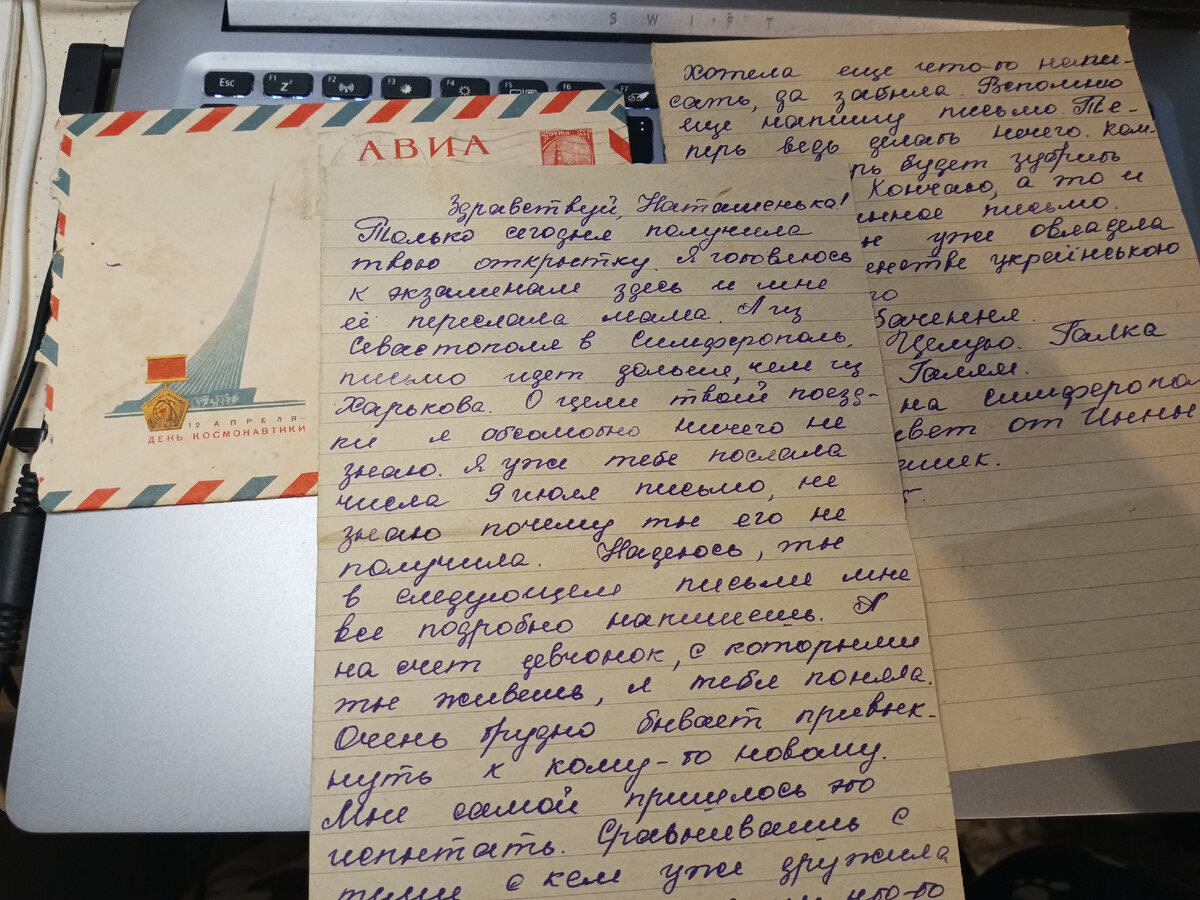 SWIFT
Esc
F1
F2
F3
F4
F5
F6
F7
АВИА
ПОЧТА СССР
12 АПРЕЛЯ–
ДЕНЬ КОСМОНАВТИКИ
Здравствуй, Наташенька!
Только сегодня получила
твою открытку. Я готовлюсь
к экзаменам здесь и мне
её переслала мама. А из
Севастополя в Симферополь
письмо идет дольше, чем из
Харькова. О цели твоей поезд-
ки я абсолютно ничего не
знаю. Я уже тебе послала
числа 9 июля письмо, не
знаю почему ты его не
получила. Надеюсь, ты
в следующем письме мне
все подробно напишешь. А
на счет девчонок, с которыми
ты живешь, я тебя поняла.
Очень трудно бывает привык-
нуть к кому-то новому.
Мне самой пришлось это
испытать. Сравниваешь с
теми с кем уже дружила
что-то
Хотела еще что-то напи-
сать, да забыла. Вспомню
еще напишу письмо. Те-
перь ведь делать нечего. Ком-
будет зубрить
Кончаю, а то и
письмо.
уже овладела
українською
бачення.
Целую. Галка
Галям.
на Симферопол
от Инны